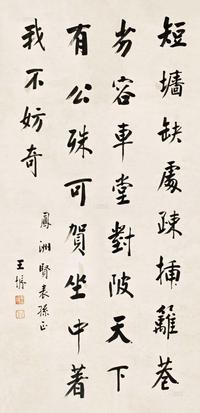 短墻缺處疎插籬巷
劣容車堂對陂天下
有公殊可賀坐中著
我不妨奇
鳳洲賢表孫正
王㙷